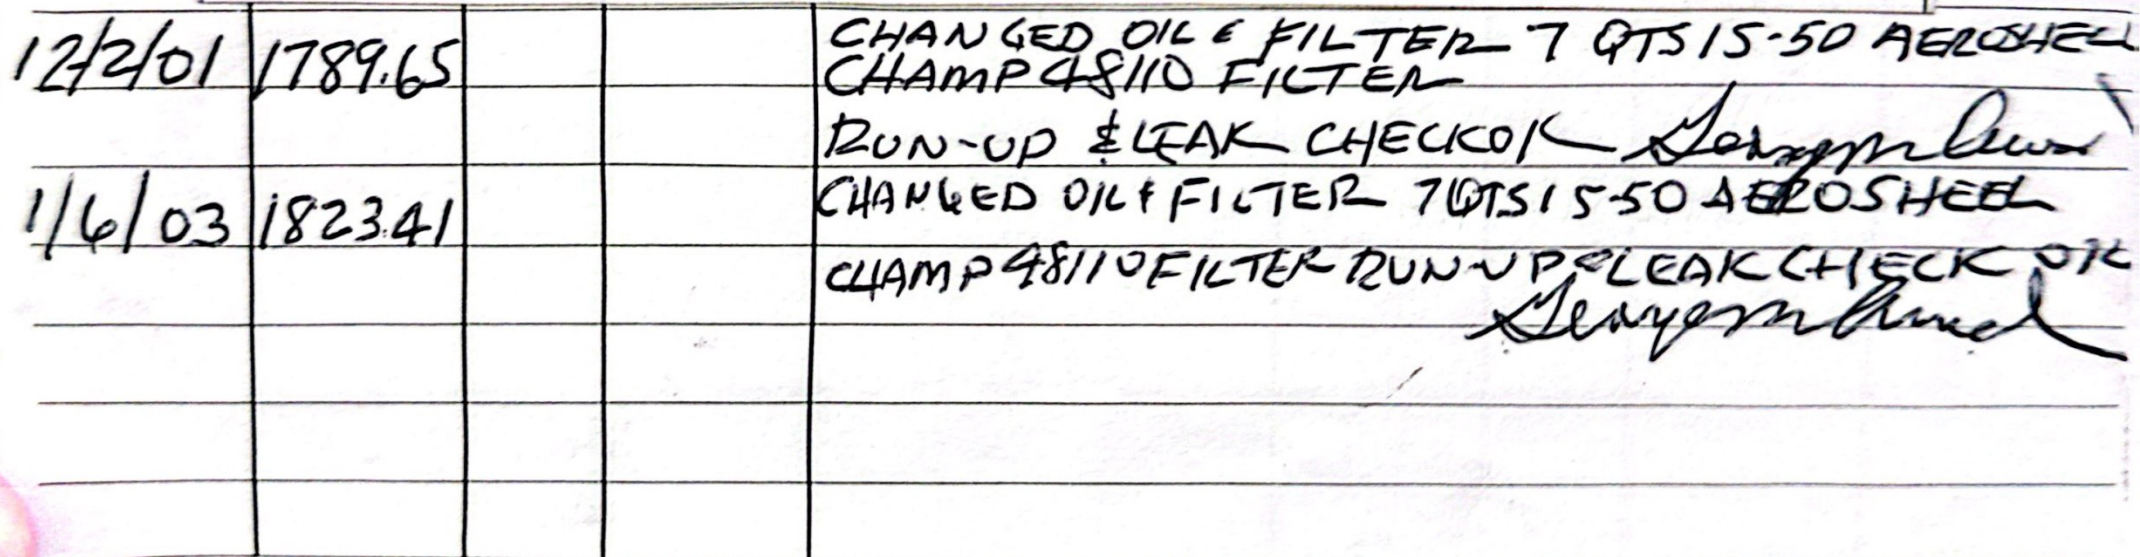 12/2/01 1789.65 CHANGED OIL & FILTER 7 QTS 15-50 AEROSHELL
CHAMP 48110 FILTER
RUN-UP & LEAK CHECK OK
1/6/03 1823.41 CHANGED OIL & FILTER 7 QTS 15-50 AEROSHELL
CHAMP 48110 FILTER RUN-UP & LEAK CHECK OK